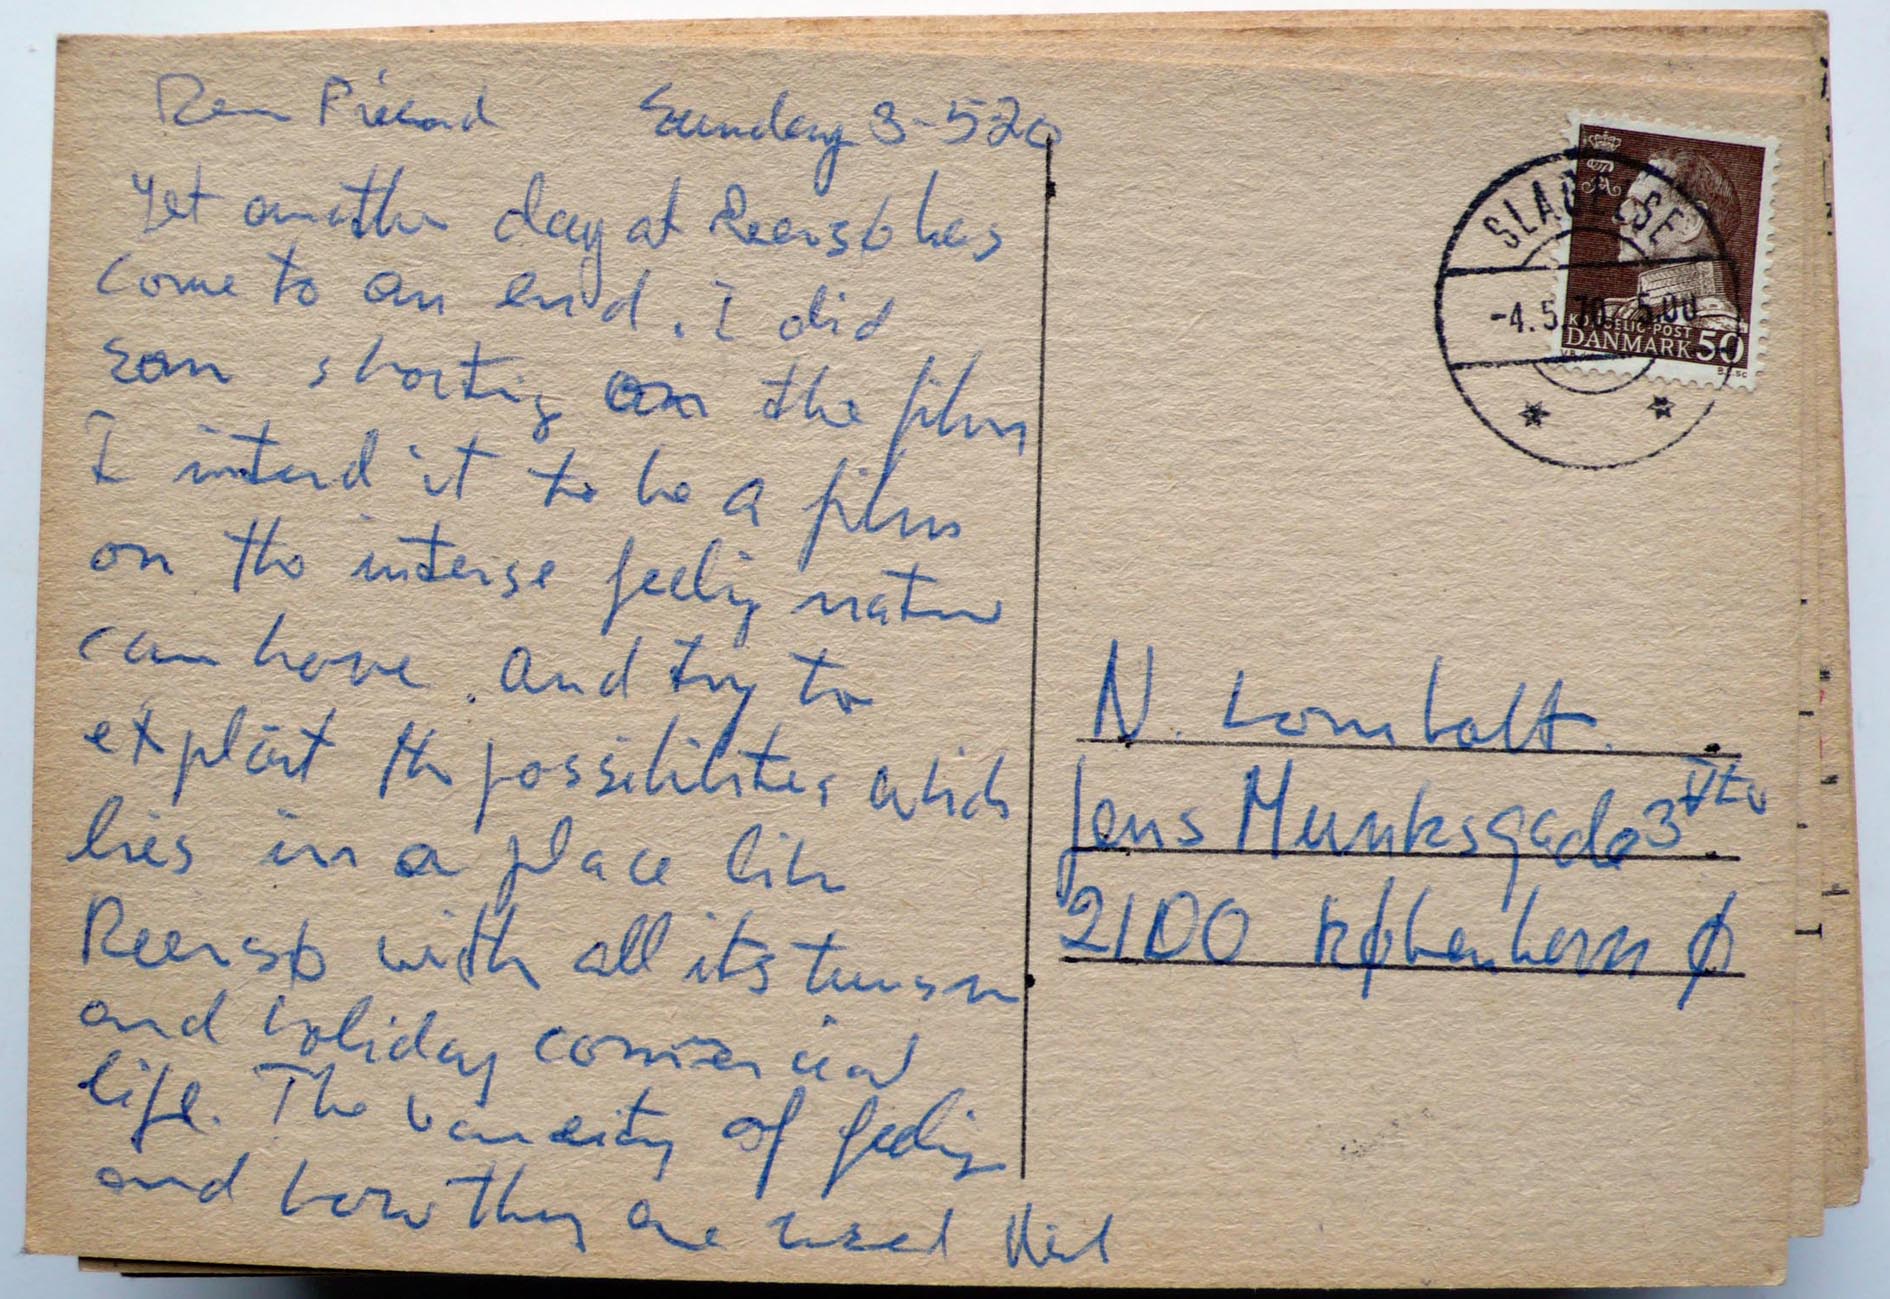 Dear Friend Sunday 3-5 70
Yet another day at Reersø has
come to an end. I did
som shorting on the film
I intend it to be a film
on the intense feeling nature
can have. And try to
exploit the possibilities which
lies in a place like
Reersø with all its turism
and holiday comercial
life. The vareity of feeling
and how they are used Niel
SLAGELSE
-4.5.70 5.00
KONGELIG POST
DANMARK 50
N. Lomholt.
Jens Munksgade 3
2100 København Ø